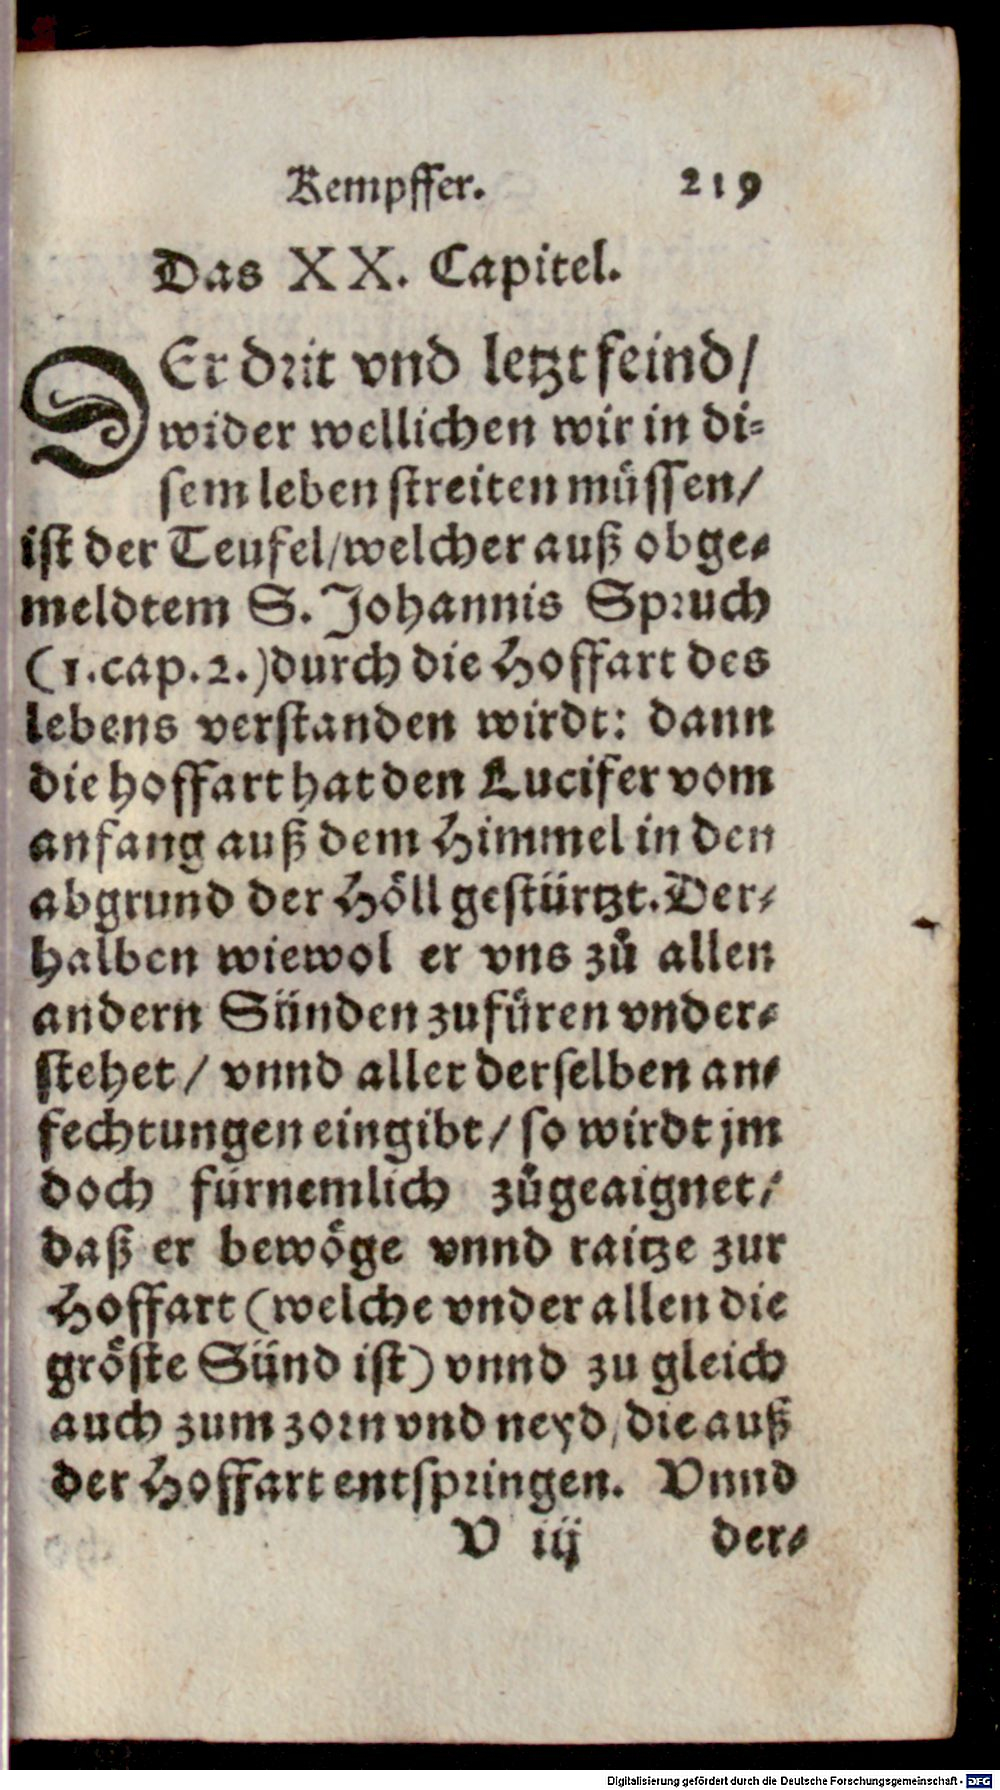 Kempffer. 219
Das XX. Capitel.
DEr drit vnd letzt feind/
wider wellichen wir in di-
sem leben streiten müssen/
ist der Teufel/welcher auß obge-
meldtem S. Johannis Spruch
(1.cap.2.)durch die Hoffart des
lebens verstanden wirdt: dann
die hoffart hat den Lucifer vom
anfang auß dem Himmel in den
abgrund der Höll gestürtzt. Der-
halben wiewol er vns zů allen
andern Sünden zufüren vnder-
stehet / vnnd aller derselben an-
fechtungen eingibt / so wirdt jm
doch fürnemlich zůgeaignet/
daß er bewöge vnnd raitze zur
Hoffart (welche vnder allen die
gröste Sünd ist) vnnd zu gleich
auch zum zorn vnd neyd/die auß
der Hoffart entspringen. Vnnd
V iij der-
Digitalisierung gefördert durch die Deutsche Forschungsgemeinschaft - DFG